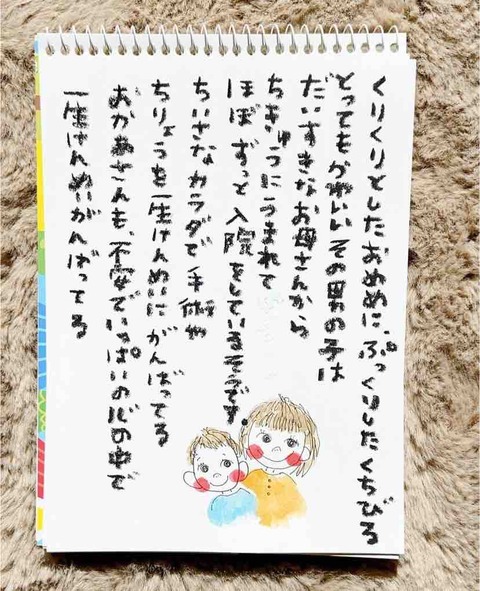 くりくりとしたおめめに、ぷっくりしたくちびる
とってもかわいいその男の子は
だいすきなお母さんから
ちきゅうにうまれて
ほぼずっと入院をしているそうです。
ちいさなカラダで手術や
ちりょうを一生けんめいにがんばってる
おかあさんも、不安でいっぱいの心の中で
一生けんめいがんばってる